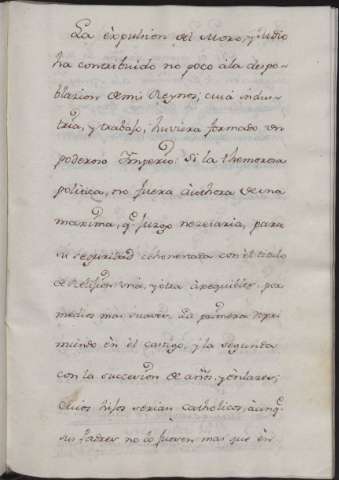 La expulsion del Moro, y Judio
ha contribuido no poco â la despo-
blazion de mis Reynos; cuiâ indus-
tria, y trabajo, huviera formado un
poderoso Imperio: Si la themorosa
politica, no fuera âuthora de una
maxima, q.e juzgo nezesaria, para
su seguridad cohonestada con el titulo
de Religion: una, y otra âsequibles, por
medios mas suaves. La primera repri-
miendo en el castigo, y la segunda
con la succession de años, y enlazes;
cuios hijos serian catholicos, âunq.e
sus Padres no lo fuesen mas que ên